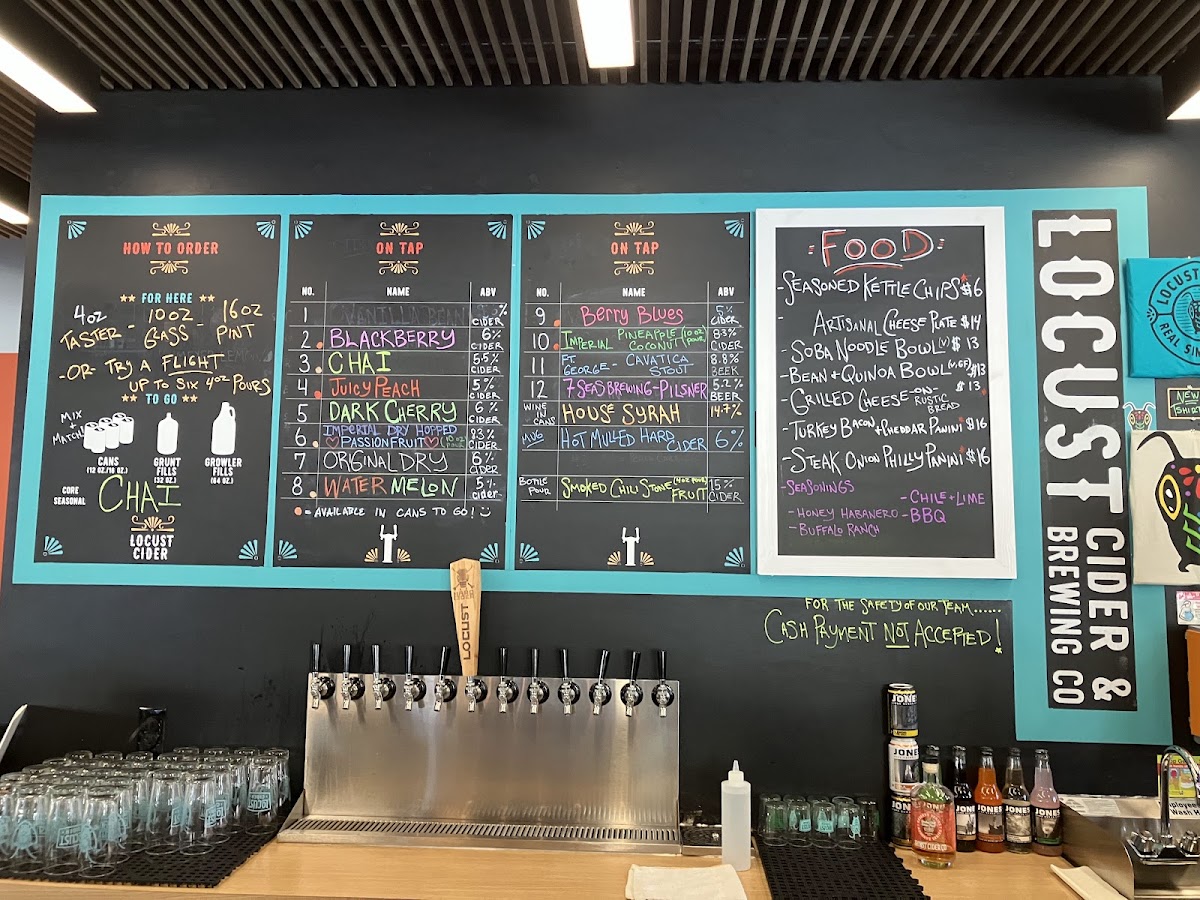 HOW TO ORDER
FOR HERE
4oz 10oz 16oz
TASTER - GASS - PINT
-OR- TRY A FLIGHT
UP TO SIX 4oz POURS
TO GO
MIX + MATCH
CANS
(12 OZ./19 OZ.)
GRUNT FILLS
(32 OZ.)
GROWLER FILLS
(64 OZ.)
CORE
SEASONAL
CHAI
LOCUST
CIDER
ON TAP
NO. NAME ABV
1 VANILLA BEAN % CIDER
2. BLACKBERRY 6% CIDER
3. CHAI 5.5% CIDER
4. JUICY PEACH 5% CIDER
5 DARK CHERRY 6% CIDER
6. IMPERIAL DRY HOPPED PASSIONFRUIT (10oz POUR) 8.3% CIDER
7 ORIGINAL DRY 6% CIDER
8. WATERMELON 5% cider
= AVAILABLE IN CANS TO GO!
ON TAP
NO. NAME ABV
9. Berry Blues 5% CIDER
10. IMPERIAL PINEAPPLE COCONUT (10oz POUR) 8.3% CIDER
11 FT. GEORGE - CAVATICA STOUT 8.8% BEER
12 7 SEAS BREWING - PILSNER 5.2% BEER
WINE IN CANS HOUSE SYRAH 14.7%
MUG HOT MULLED HARD CIDER 6%
BOTTLE POUR SMOKED CHILI STONE FRUIT (4oz POUR) 15% CIDER
FOOD
- SEASONED KETTLE CHIPS $6
ARTISANAL CHEESE PLATE $14
- SOBA NOODLE BOWL (V) $13
- BEAN + QUINOA BOWL (V, GF) $13
- GRILLED CHEESE -ON- RUSTIC BREAD $13
- TURKEY BACON + CHEDDAR PANINI $16
- STEAK ONION PHILLY PANINI $16
- SEASONINGS
- CHILE + LIME
- HONEY HABANERO - BBQ
- BUFFALO RANCH
FOR THE SAFETY OF OUR TEAM......
CASH PAYMENT NOT ACCEPTED!
LOCUST CIDER &
BREWING CO
LOCUST
REAL SIM
NEW
LOCUST
LOCUST
JONES
JONES
JONES
JONES
JONES
JONES
Employees
Wash H